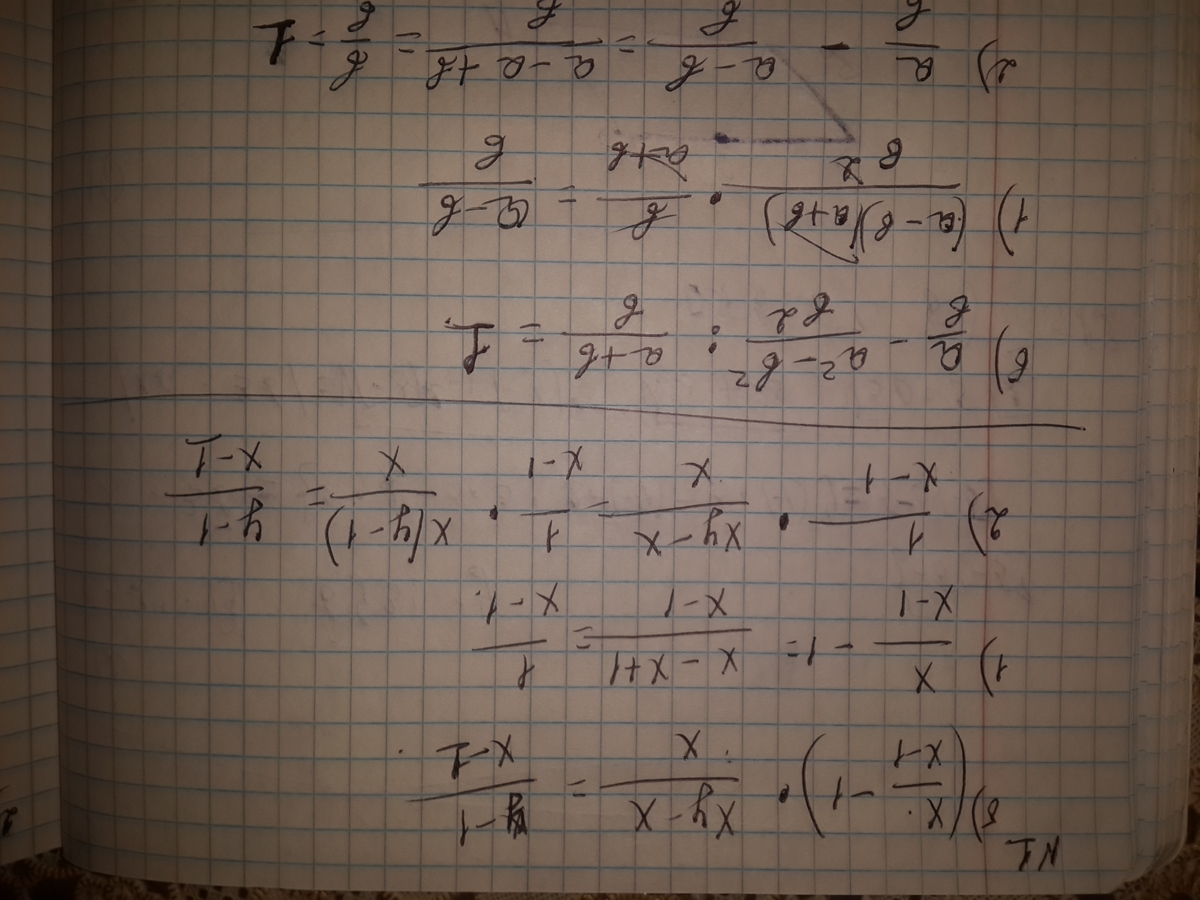 N1
б) (x/(x-1) - 1) · (xy-x)/x = (y-1)/(x-1)
1) x/(x-1) - 1 = (x-x+1)/(x-1) = 1/(x-1)
2) 1/(x-1) · (xy-x)/x = 1/(x-1) · x(y-1)/x = (y-1)/(x-1)
в) a/b - (a²-b²)/b² : (a+b)/b = 1
1) (a-b)(a+b)/b² · b/(a+b) = (a-b)/b
2) a/b - (a-b)/b = (a-a+b)/b = b/b = 1